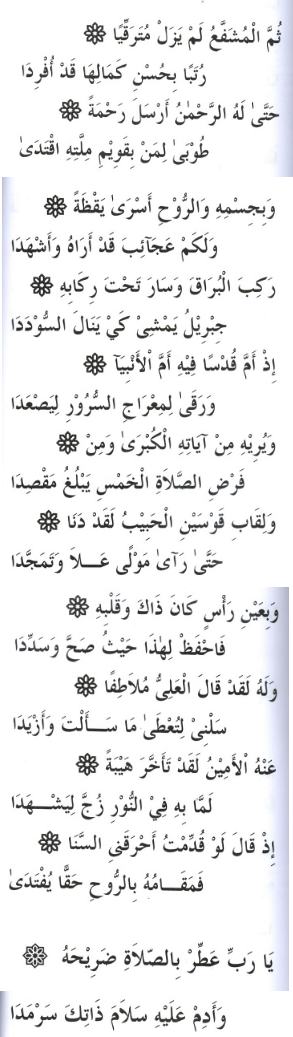 ثُمَّ الْمُشَفَّعُ لَمْ يَزَلْ مُتَرَقِّيًا ❁
رُتَبًا بِحُسْنِ كَمَالِهَا قَدْ أُفْرِدَا
حَتَّىٰ لَهُ الرَّحْمٰنُ أَرْسَلَ رَحْمَةً ❁
طُوْبَىٰ لِمَنْ بِقَوِيْمِ مِلَّتِهِ اقْتَدَىٰ
وَبِجِسْمِهِ وَالرُّوْحِ أَسْرَىٰ يَقْظَةً ❁
وَلَكَمْ عَجَآئِبَ قَدْ أَرَاهُ وَأَشْهَدَا
رَكِبَ الْبُرَاقَ وَسَارَ تَحْتَ رِكَابِهِ ❁
جِبْرِيْلُ يَمْشِيْ كَيْ يَنَالَ السُّوْدَدَا
إِذْ أَمَّ قُدْسًا فِيْهِ أَمَّ الْأَنْبِيَآ ❁
وَرَقَىٰ لِمِعْرَاجِ السُّرُوْرِ لِيَصْعَدَا
وَيُرِيْهِ مِنْ آيَاتِهِ الْكُبْرَىٰ وَمِنْ ❁
فَرْضِ الصَّلَاةِ الْخَمْسِ يَبْلُغُ مَقْصِدَا
وَلِقَابِ قَوْسَيْنِ الْحَبِيْبُ لَقَدْ دَنَا ❁
حَتَّىٰ رَآىٰ مَوْلًى عَـــلَا وَتَمَجَّدَا
وَبِعَيْنِ رَأْسٍ كَانَ ذَاكَ وَقَلْبِهِ ❁
فَاحْفَظْ لِهٰذَا حَيْثُ صَحَّ وَسَدِّدَا
وَلَهُ لَقَدْ قَالَ الْعَلِيُّ مُلَاطِفًا ❁
سَلْنِيْ لِتُعْطَىٰ مَا ســـَأَلْتَ وَأَزْيَدَا
عَنْهُ الْأَمِيْنُ لَقَدْ تَأَخَّرَ هَيْبَةً ❁
لَمَّا بِهِ فِيْ النُّوْرِ زُجَّ لِيَشْـــهَدَا
إِذْ قَالَ لَوْ قُدِّمْتُ أَحْرَقَنِي السَّنَا ❁
فَمَقَـــامُهُ بِالرُّوحِ حَقًّا يُفْتَدَىٰ
يَا رَبِّ عَطِّرْ بِالصَّلَاةِ ضَرِيْحَهُ ❁
وَأَدِمْ عَلَيْهِ سَلَامَ ذَاتِكَ سَرْمَدَا